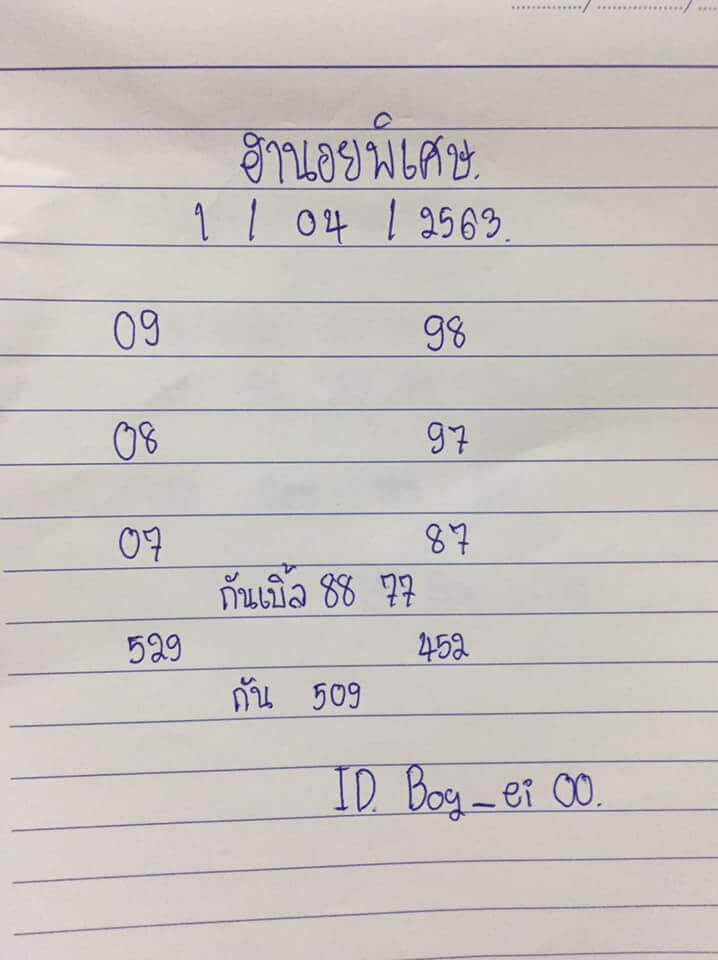 ฮานอยพิเศษ.
1 / 04 / 2563.
09 98
08 97
07 87
กันเบิ้ล 88 77
529 452
กัน 509
ID. Boy_ei 00.